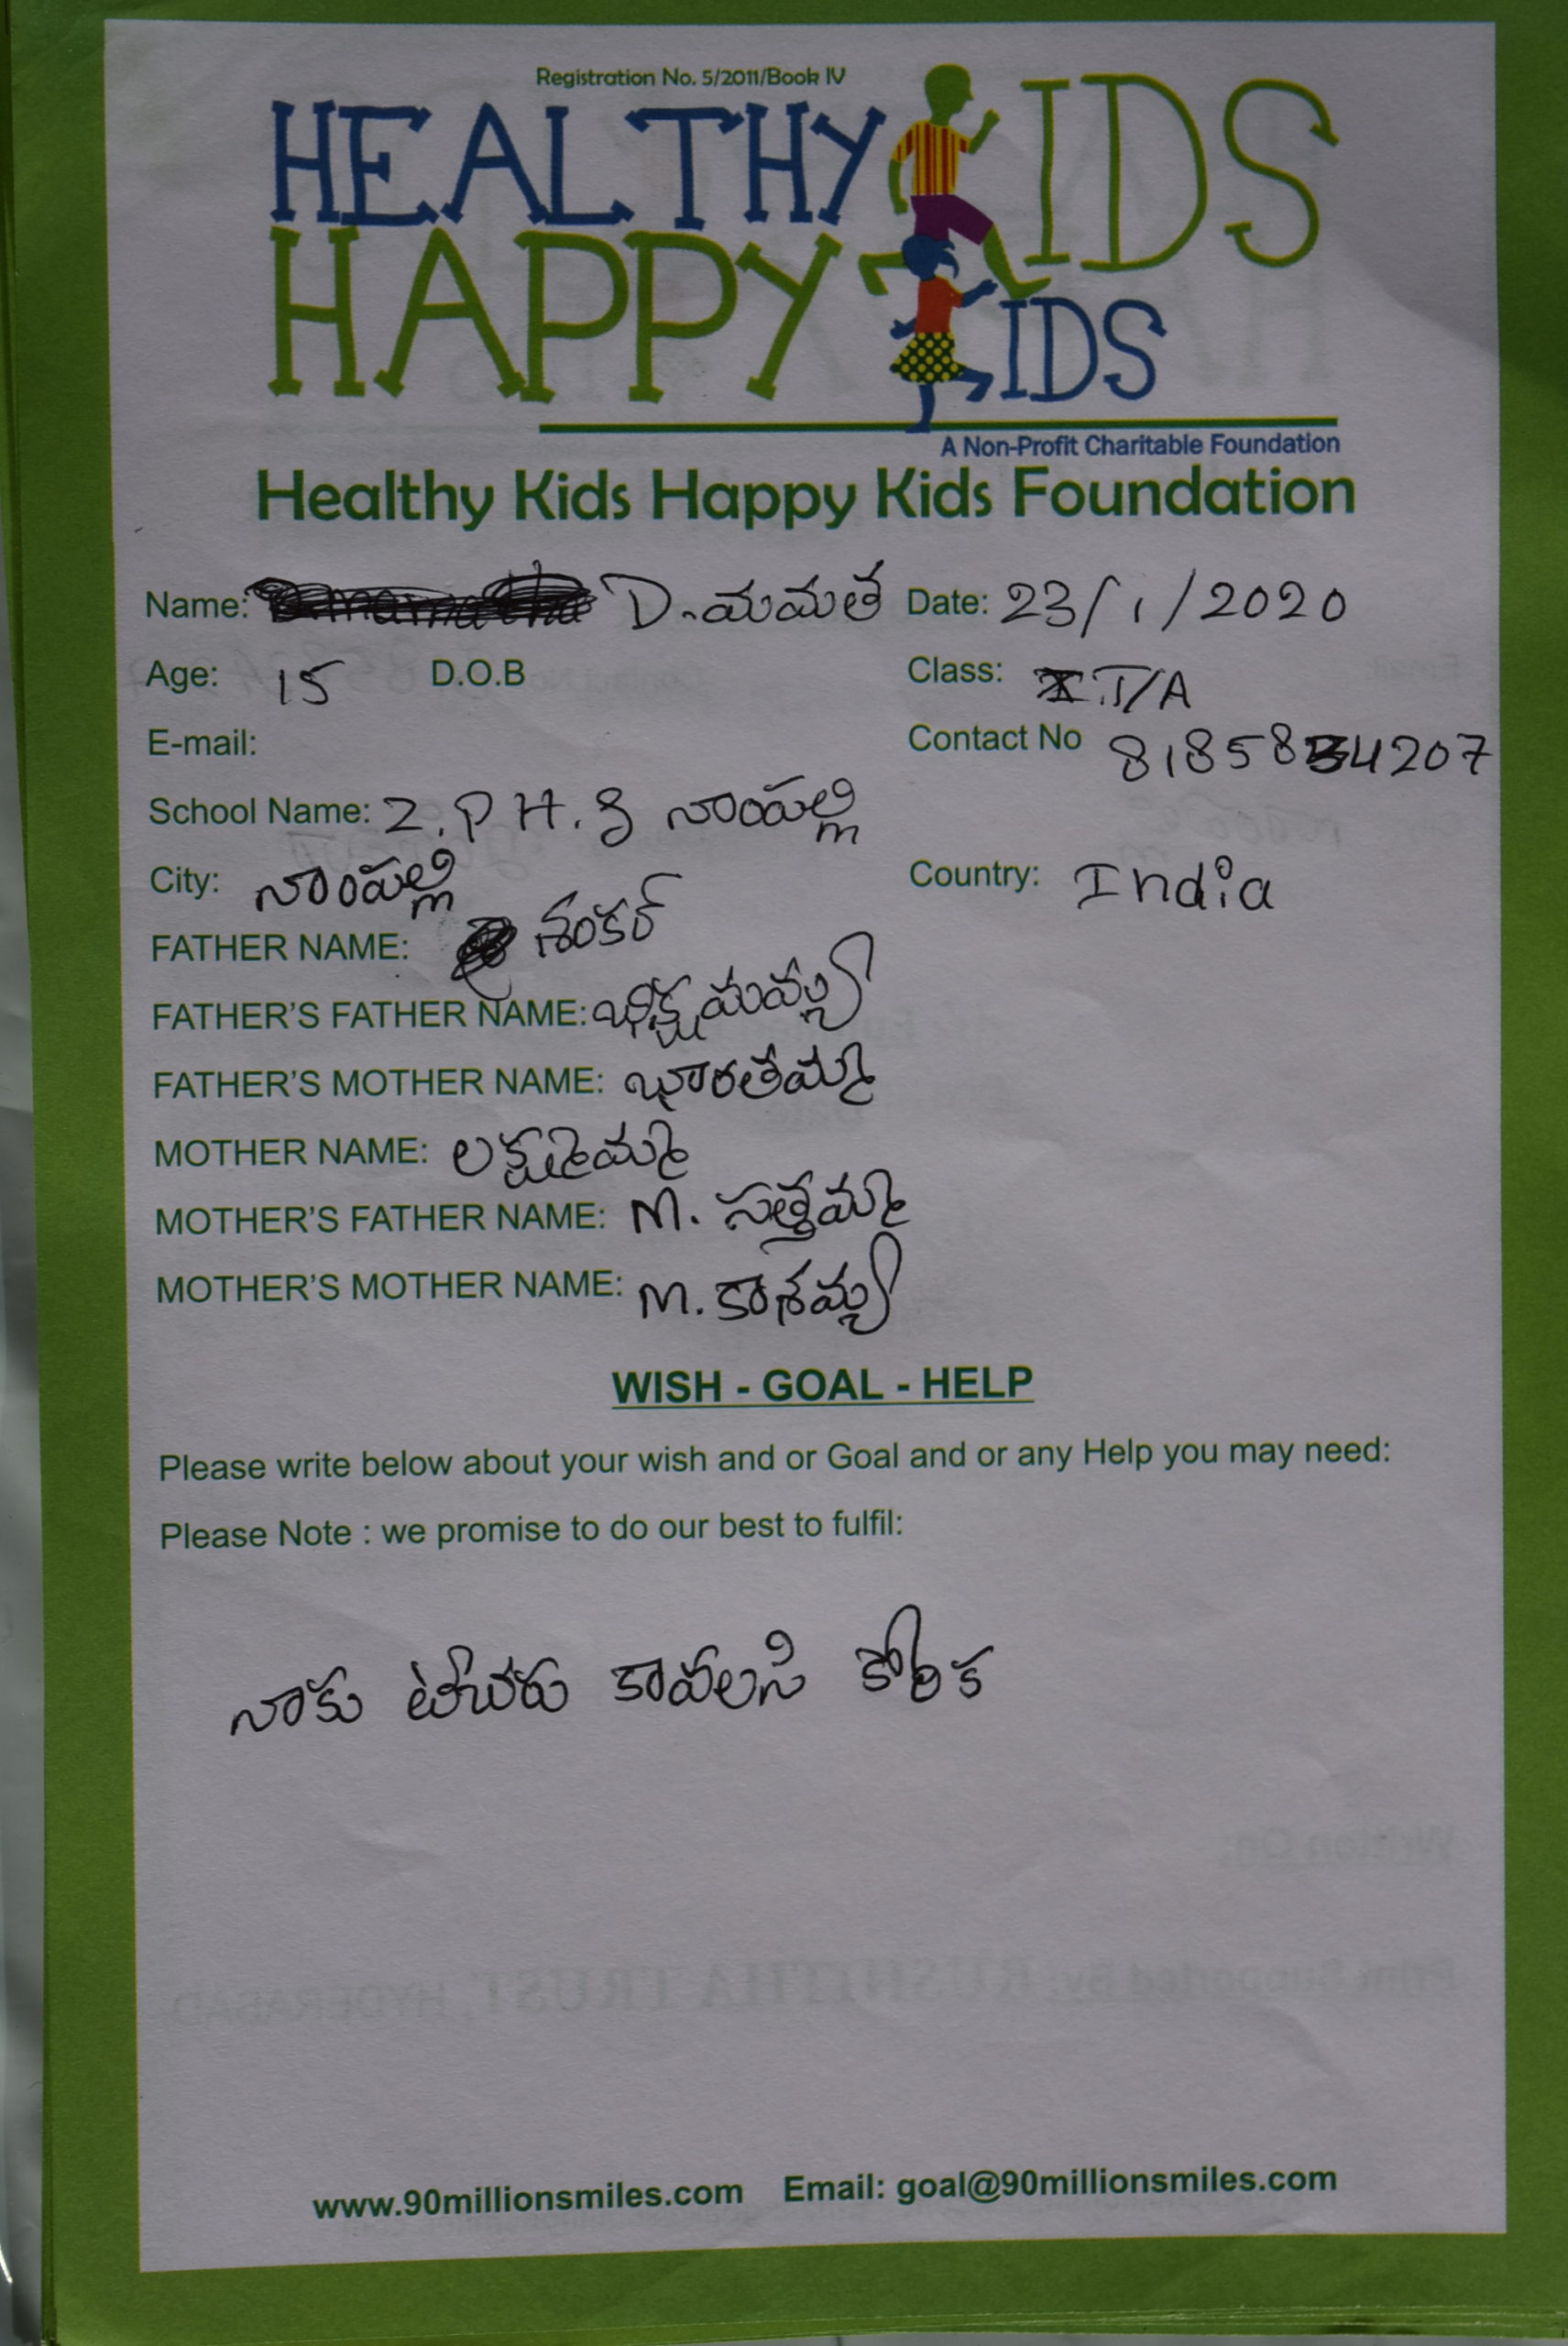 Registration No. 5/2011/Book IV
HEALTHY KIDS
HAPPY KIDS
A Non-Profit Charitable Foundation
Healthy Kids Happy Kids Foundation
Name: D. మమత Date: 23/1/2020
Age: 15 D.O.B Class:
E-mail: Contact No
School Name: Z.P H.S నాంపల్లి
City: నాంపల్లి Country: India
FATHER NAME: శంకర్
FATHER'S FATHER NAME: భిక్షమయ్య
FATHER'S MOTHER NAME: భారతమ్మ
MOTHER NAME: లక్ష్మమ్మ
MOTHER'S FATHER NAME: M. సత్తమ్మ
MOTHER'S MOTHER NAME: M. కాశయ్య
WISH - GOAL - HELP
Please write below about your wish and or Goal and or any Help you may need:
Please Note : we promise to do our best to fulfil:
నాకు టీచరు కావలసి కోరిక
www.90millionsmiles.com Email: goal@90millionsmiles.com